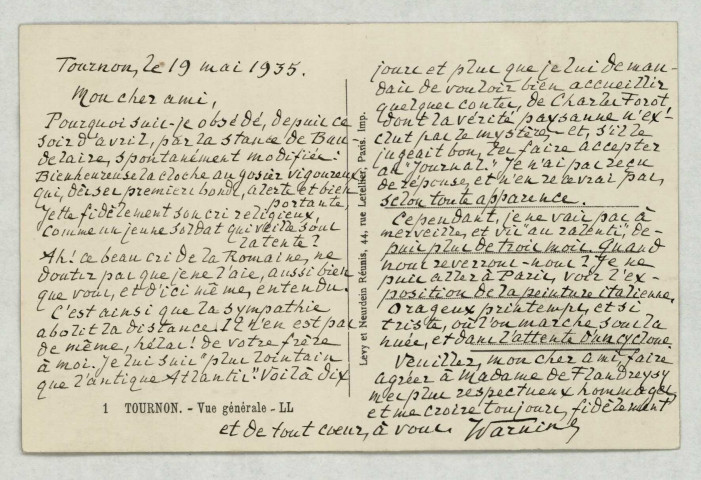 Tournon, le 19 mai 1935.
Mon cher ami,
Pourquoi suis-je obsédé, depuis ce
soir d'avril, par la stance de Bau-
delaire, spontanément modifiée:
Bienheureuse la cloche au gosier vigoureux
qui, dès ses premiers bonds, alerte et bien
portante,
Jette fidèlement son cri religieux,
Comme un jeune soldat qui veille sous
la tente?
Ah! ce beau cri de la Romaine, ne
doutez pas que je ne l'aie, aussi bien
que vous, et d'ici même, entendu.
C'est ainsi que la sympathie
abolit la distance. Il n'en est pas
de même, hélas! de votre frère
à moi. Je lui suis "plus lointain
que l'antique Atlantis". Voilà dix
1 TOURNON. - Vue générale - LL
Levy et Neurdein Réunis, 44, rue Letellier, Paris. Imp.
jours et plus que je lui deman-
dais de vouloir bien accueillir
quelques contes, de Charles Forot,
dont la vérité paysanne n'ex-
clut pas le mystère et, s'il le
jugeait bon, les faire accepter
au "Journal". Je n'ai pas reçu
de réponse, et n'en recevrai pas,
selon toute apparence.
Cependant, je ne vais pas à
merveille, et vis "au ralenti", de-
puis plus de trois mois. Quand
nous reverrons-nous? Je ne
puis aller à Paris, voir l'ex-
position de la peinture italienne.
Orageux printemps, et si
triste, où l'on marche sous la
nuée, et dans l'attente d'un cyclone.
Veuillez, mon cher ami, faire
agréer à Madame de Flandreysy
mes plus respectueux hommages,
et me croire toujours, fidèlement
et de tout cœur, à vous.